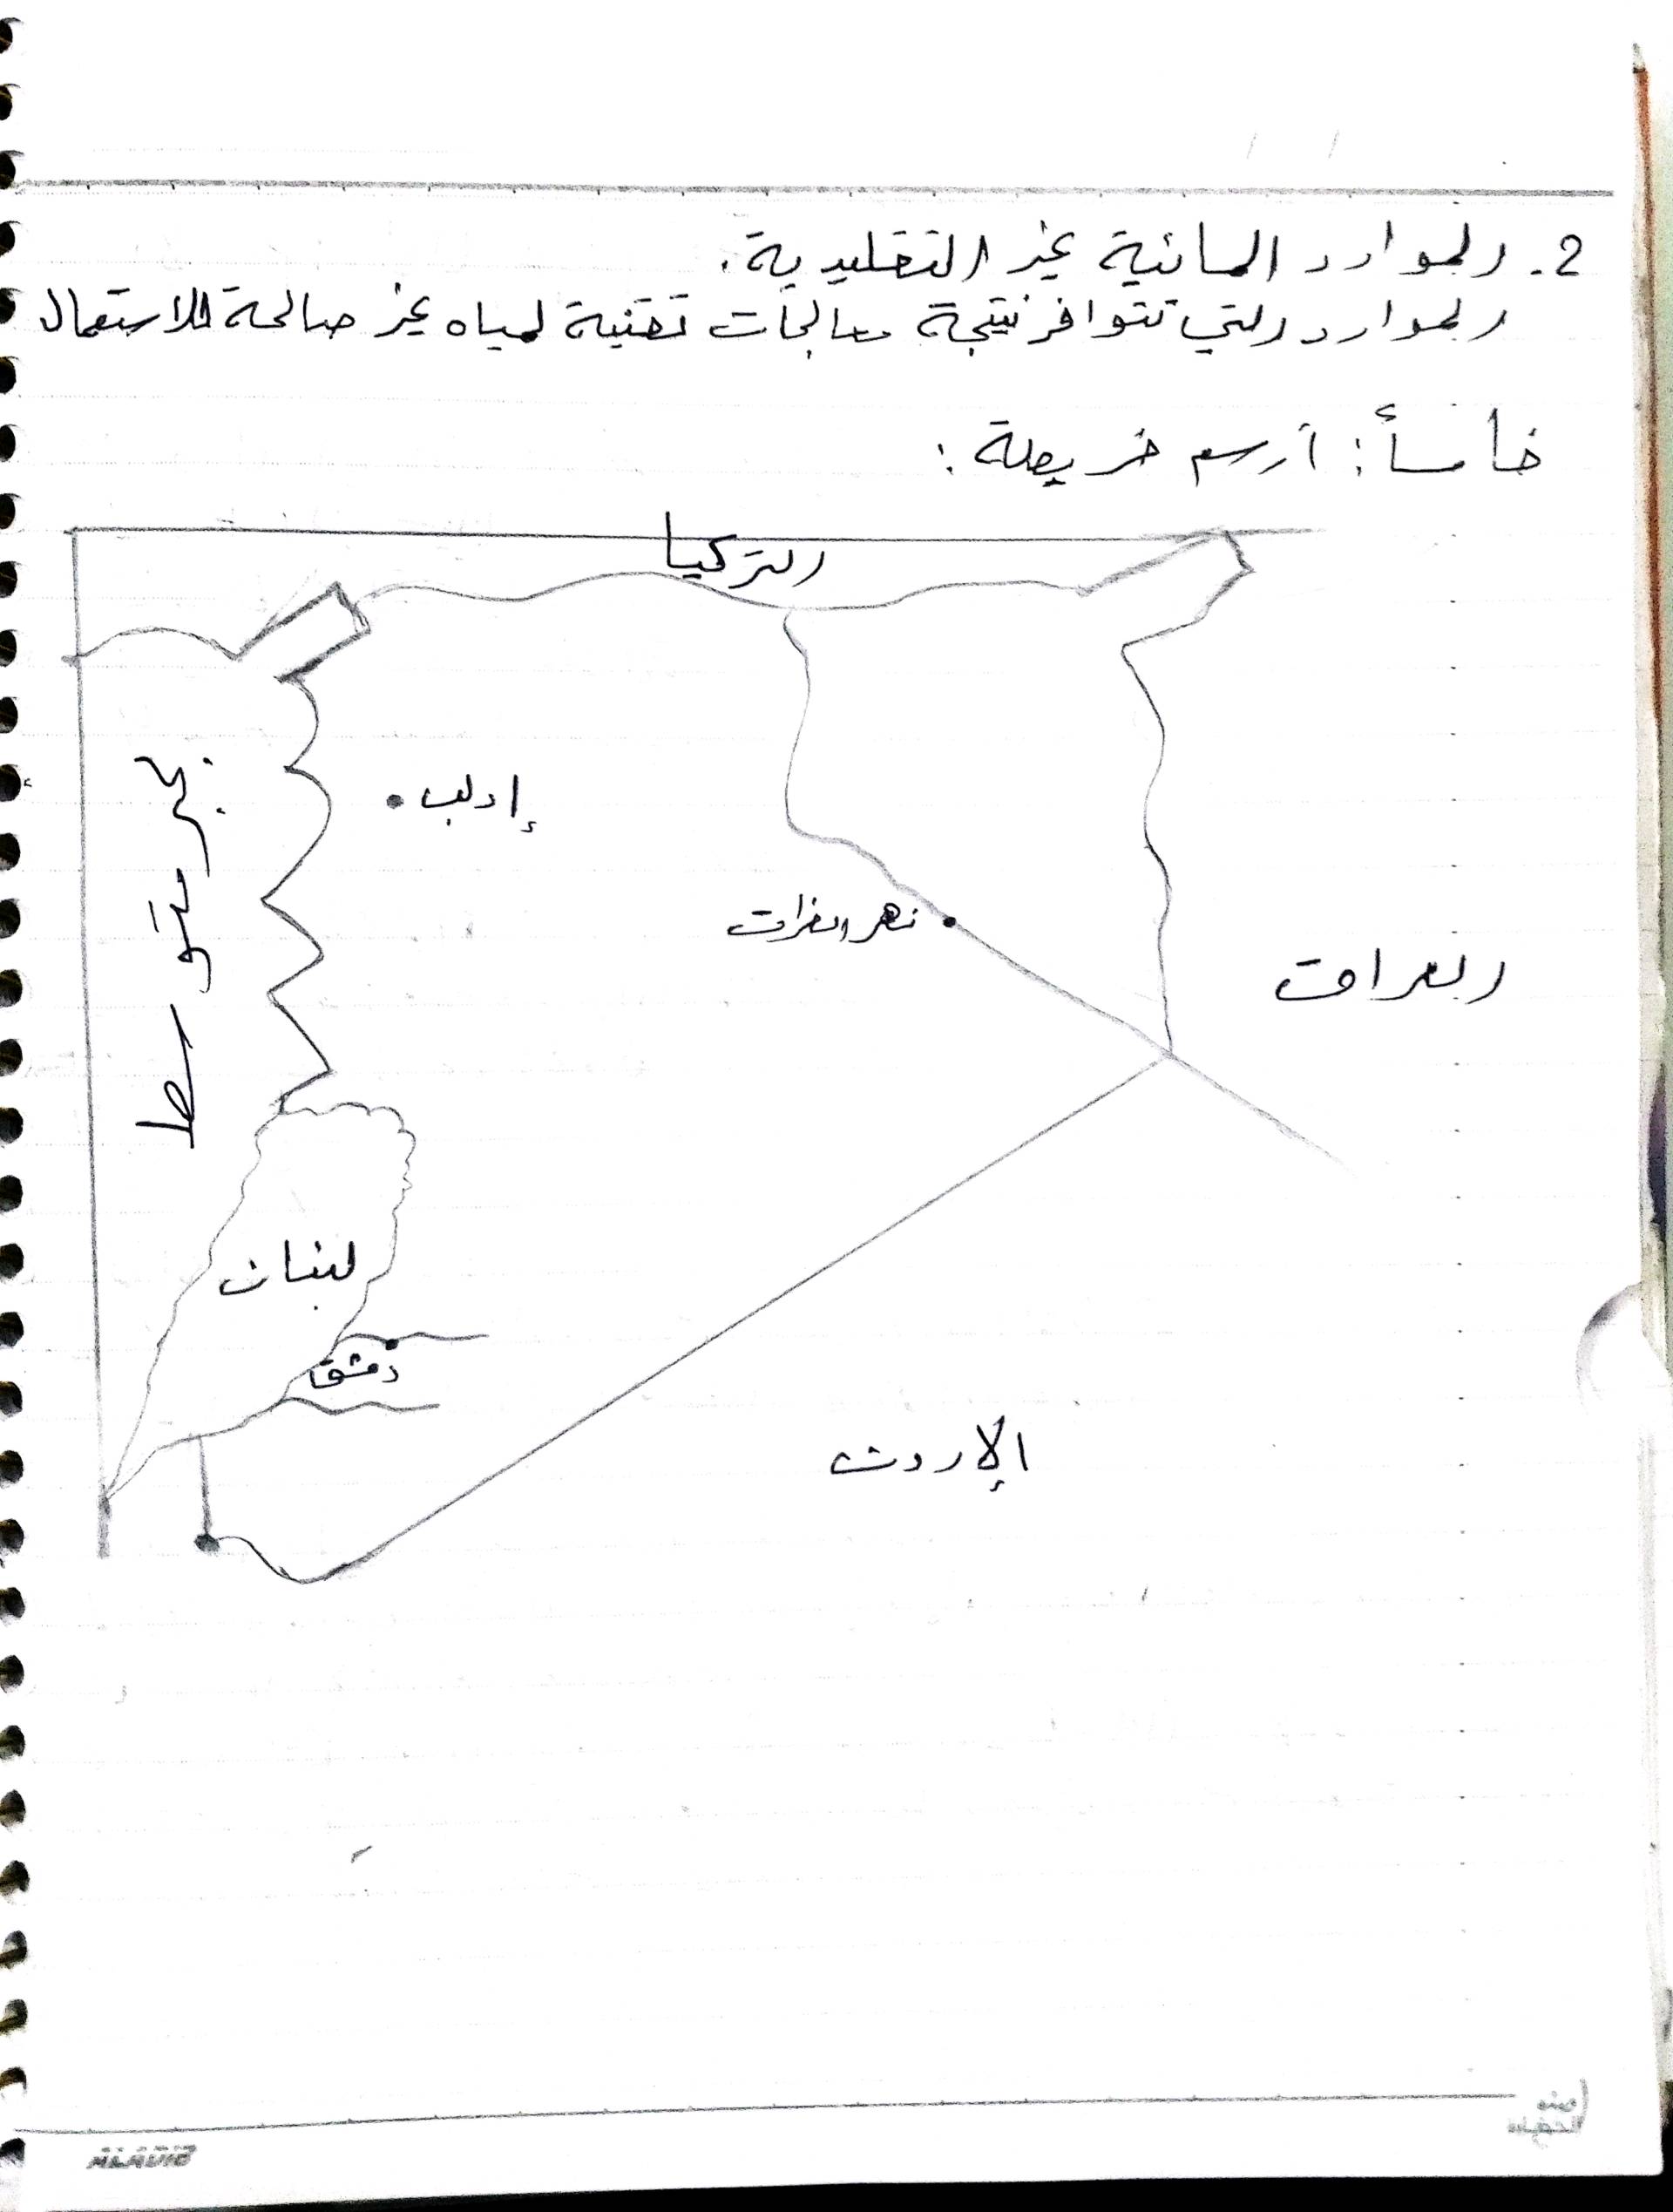 2. الموارد المائية غير التقليدية.
الموارد التي تتوافر نتيجة معالجات تقنية لمياه غير صالحة للاستعمال
خامساً: أرسم خريطة:
التركيا
بحر متوسط
إدلب
نهر الفرات
العراق
لبنان
دمشق
الإردن